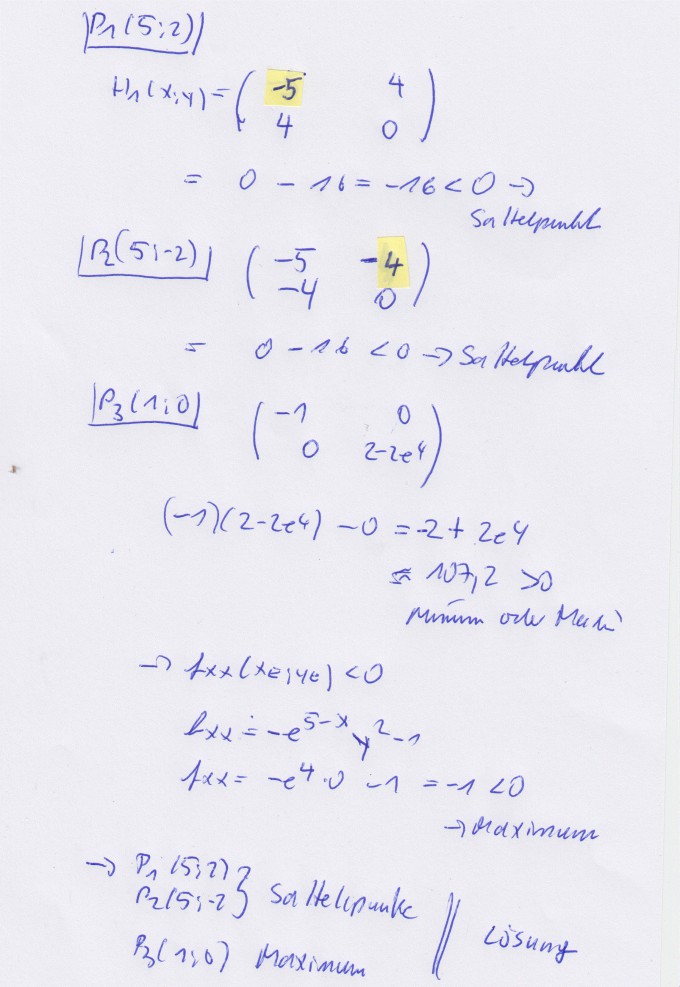 P1(5;2)
H1(x;y) = ( -5 4
4 0 )
= 0 - 16 = -16 < 0 →
Sattelpunkt
P2(5;-2) ( -5 -4
-4 0 )
= 0 - 16 < 0 → Sattelpunkt
P3(1;0) ( -1 0
0 2-2e4 )
(-1)(2-2e4) - 0 = -2 + 2e4
≈ 107,2 > 0
Minimum oder
→ fxx(xE;yE) < 0
fxx = -e^5-x y^2 - 1
fxx = -e^4 · 0 - 1 = -1 < 0
→ Maximum
→ P1(5;2) }
P2(5;-2 } Sattelpunkte
P3(1;0) Maximum || Lösung